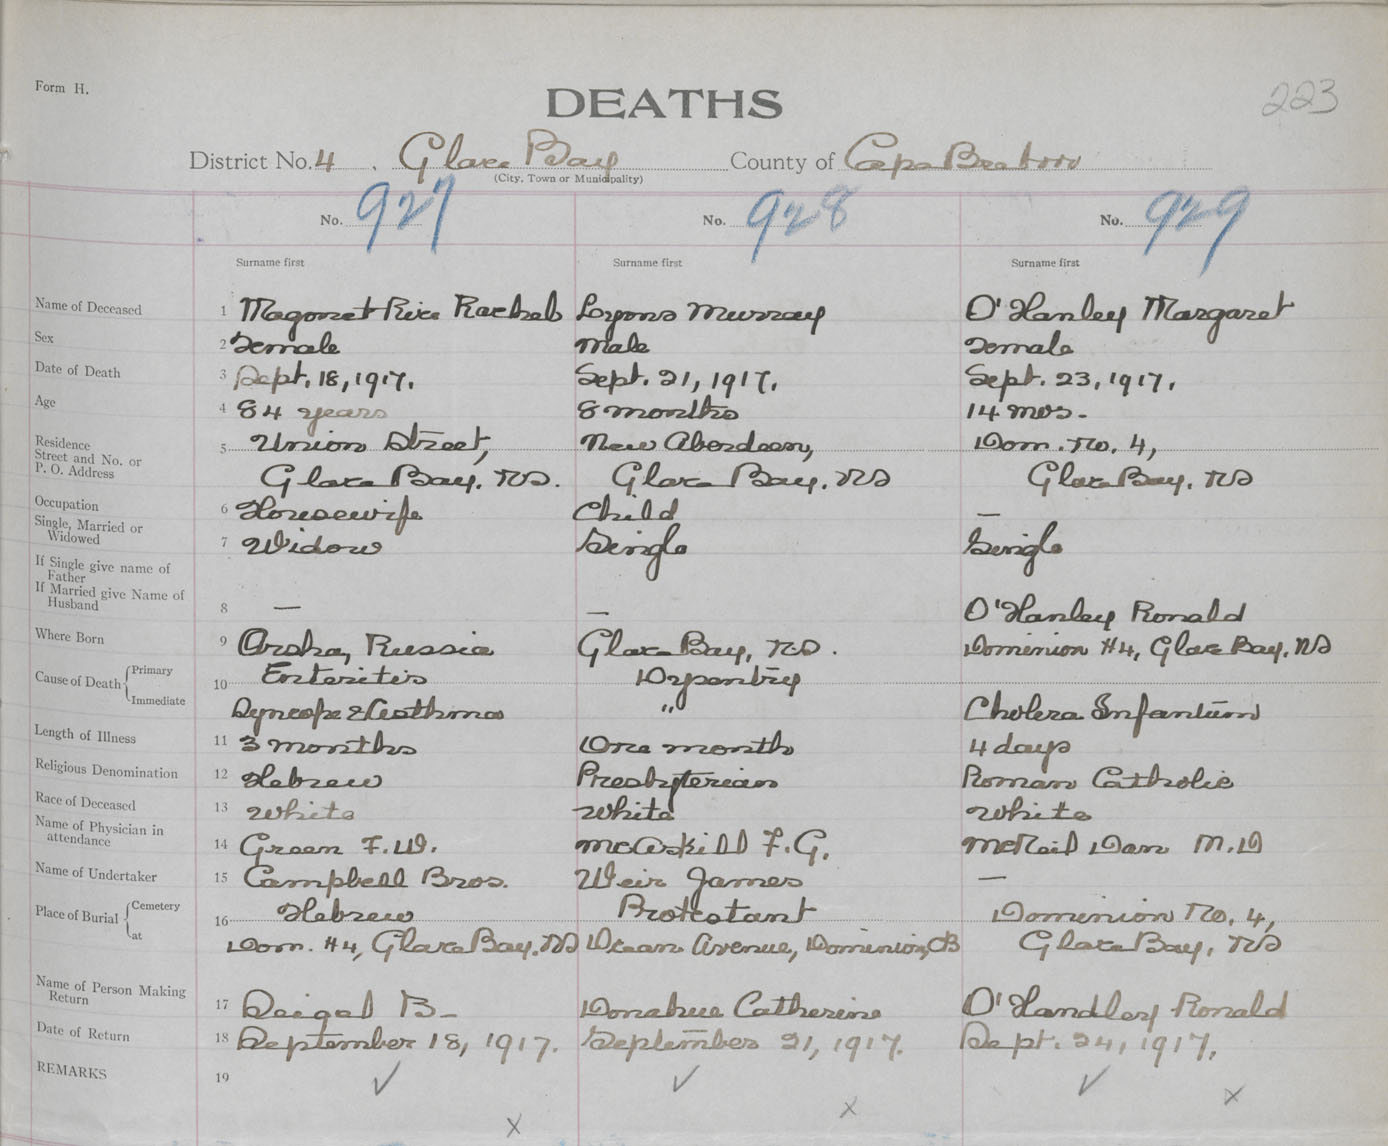 Form H.
DEATHS
223
District No. 4, Glace Bay County of Cape Breton
(City, Town or Municipality)
No. 927 No. 928 No. 929
Surname first Surname first Surname first
Name of Deceased 1 Rive Lyons Murray O'Hanley Margaret
Sex 2 Female Male Female
Date of Death 3 Sept. 18, 1917. Sept. 21, 1917. Sept. 23, 1917.
Age 4 84 years 8 months 14 mos.
Residence
Street and No. or
P. O. Address
5 Union Street, New Aberdeen, Dom. No. 4,
Glace Bay. NS. Glace Bay, NS Glace Bay, NS
Occupation 6 Housewife Child —
Single, Married or
Widowed
7 Widow Single Single
If Single give name of
Father
If Married give Name of
Husband
8 — — O'Hanley Ronald
Where Born 9 Russia Glace Bay, N.S. Dominion #4, Glace Bay, NS
Cause of Death Primary 10 Enteritis Dysentry
Immediate Syncope & Asthma " Cholera Infantum
Length of Illness 11 3 months One month 4 days
Religious Denomination 12 Hebrew Presbyterian Roman Catholic
Race of Deceased 13 White White White
Name of Physician in
attendance
14 Green F.W. McAskill F.G. McNeil Dan M.D
Name of Undertaker 15 Campbell Bros. Weir James —
Place of Burial Cemetery 16 Hebrew Protestant Dominion No. 4,
at Dom. #4, Glace Bay. NS Avenue, Dominion, CB Glace Bay, NS
Name of Person Making
Return
17 B- Donahue Catherine O'Handley Ronald
Date of Return 18 September 18, 1917. September 21, 1917. Sept. 24, 1917.
REMARKS 19 ✓ ✓ ✓
x x x